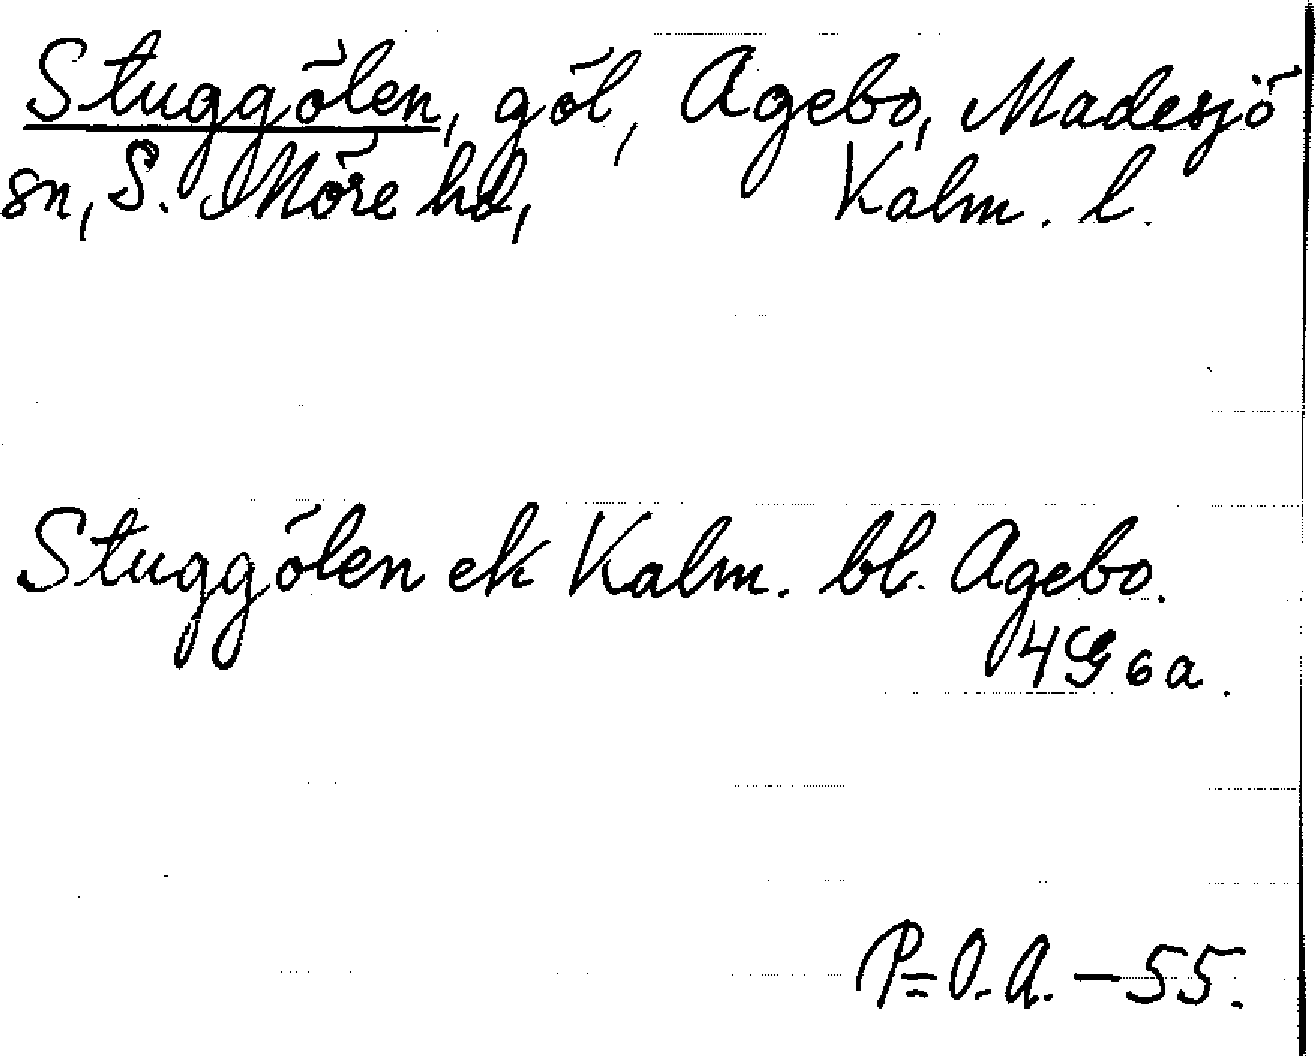 Stuggölen, göl, Agebo, Madesjö
sn, S. Möre hd, Kalm. l.
Stuggölen ek Kalm. bl. Agebo.
4G6a.
P-O.A. - 55.